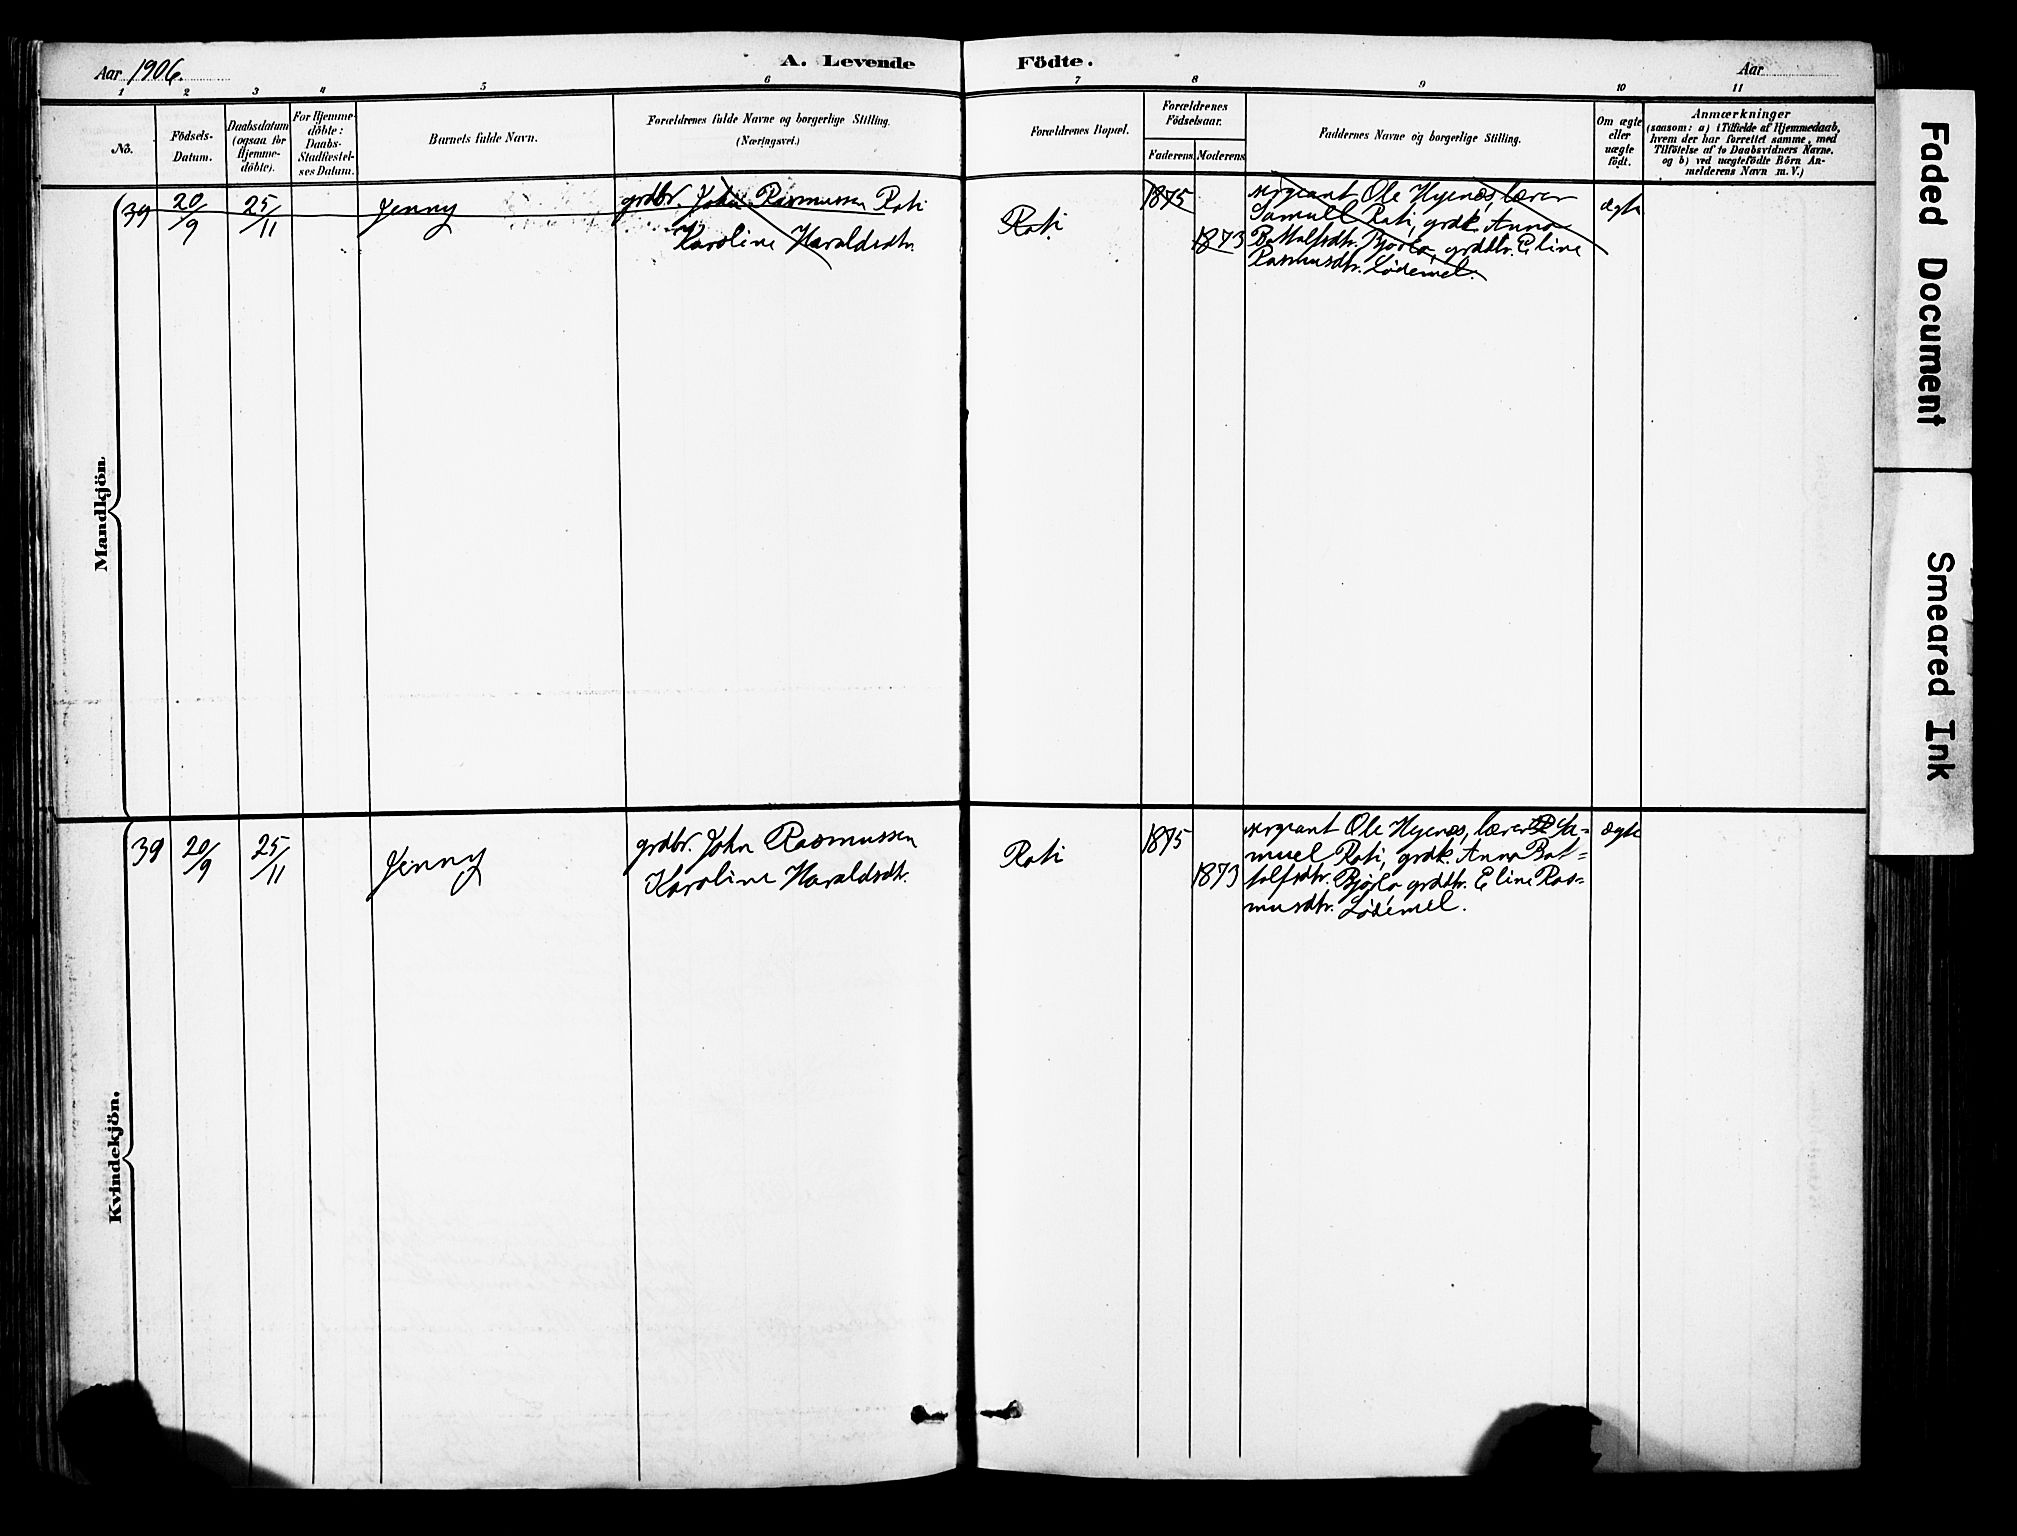 Aar 1906.
A. Levende Födte.
Aar
1 2 3 4 5 6 7 8 9 10 11
No.
Födsels-
Datum.
Daabsdatum
(ogsaa for
Hjemme-
döbte).
For Hjemme-
döbte:
Daabs-
Stadfæstel-
ses Datum.
Barnets fulde Navn.
Forældrenes fulde Navne og borgerlige Stilling.
(Næringsvei.)
Forældrenes Bopæl.
Forældrenes
Födselsaar.
Faderens. Moderens.
Faddernes Navne og borgerlige Stilling.
Om ægte
eller
uægte
födt.
Anmærkninger
(saasom: a) i Tilfælde af Hjemmedaab,
hvem der har forrettet samme, med
Tilföielse af to Daabsvidners Navne.
og b) ved uægtefödte Börn An-
melderens Navn m. V.)
Mandkjön.
39 20/9 25/11 Jenny
grdbr. John Rasmussen Rati
Karoline Haraldsdtr.
Rati
1875
1873
sergeant Ole Hyenæs, lærer
Samuel Rati, grdk. Anna
Bottolfsdtr. Bjørlo, grddtr. Eline
Rasmusdtr. Lødemel.
ægte
Kvindekjön.
39 20/9 25/11 Jenny
grdbr. John Rasmussen
Karoline Haraldsdtr.
Rati
1875
1873
sergeant Ole Hyenæs, lærer Sa-
muel Rati, grdk. Anna Bot-
tolfsdtr. Bjørlo grddtr. Eline Ras-
musdtr. Lødemel.
ægte
Faded Document
Smeared Ink